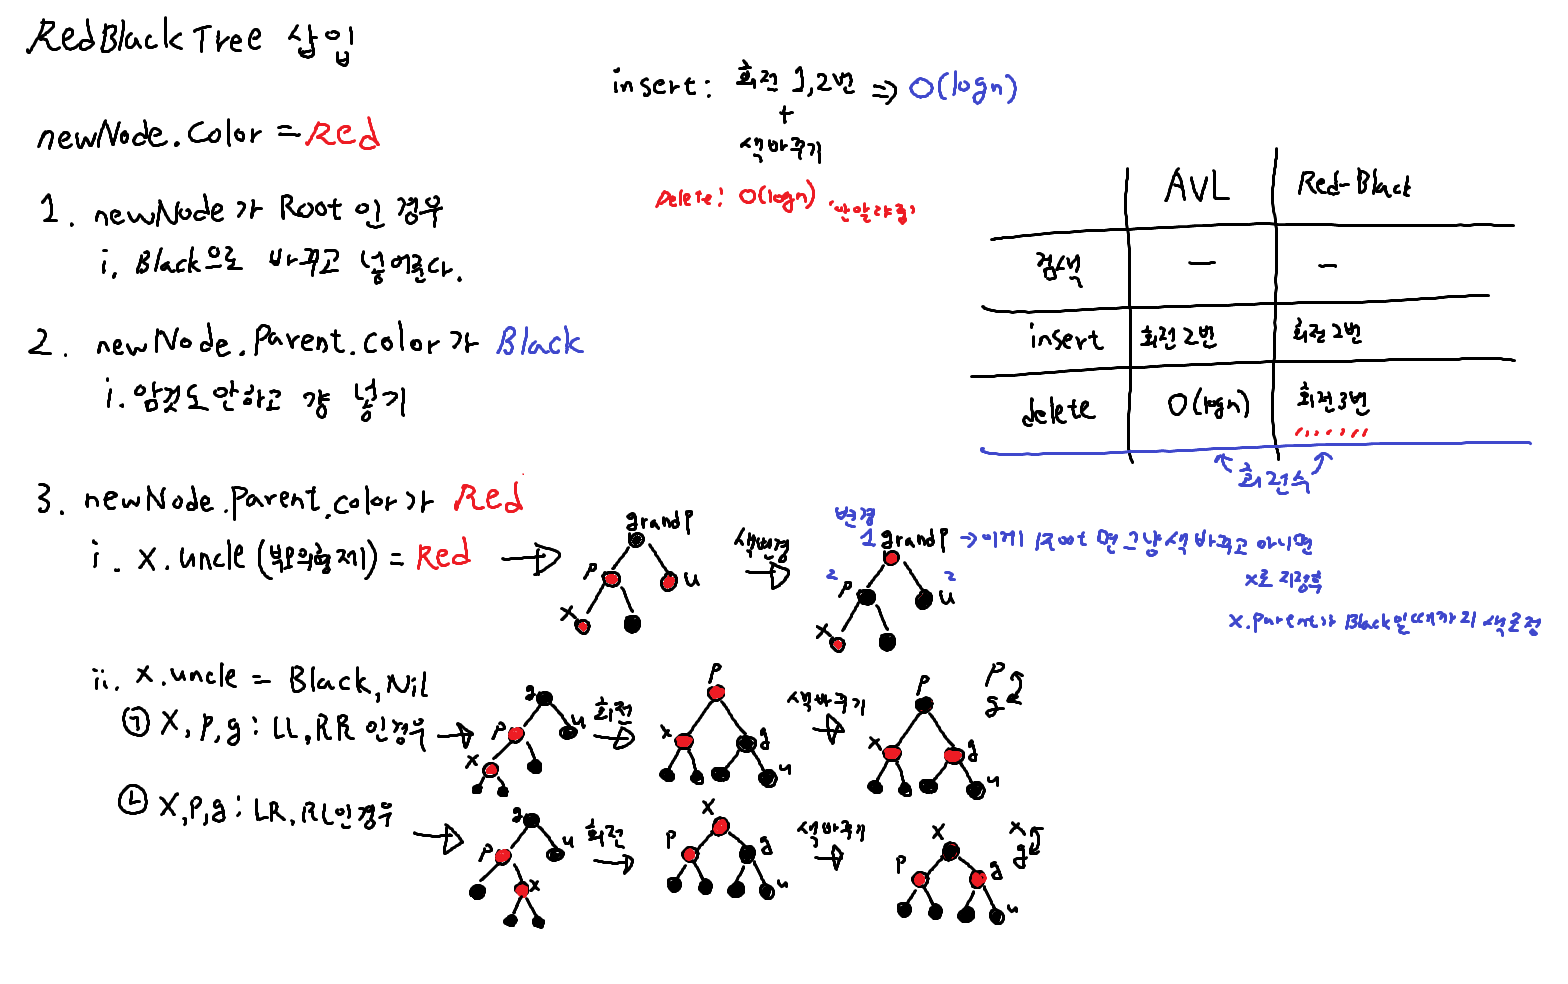 RedBlackTree 삽입
newNode.Color = Red
1. newNode가 Root 인 경우
i. Black으로 바꾸고 넣어준다.
2. newNode.Parent.color가 Black
i. 암것도안하고 걍 넣기
3. newNode.Parent.color가 Red
i. X.uncle (부모의형제) = Red
grandP
P
u
X
색변경
변경
1 grandP → 이게 Root 면 그냥 색 바꾸고 아니면
X로 지정후
X.Parent가 Black일때까지 색조정
2
P
2
u
X
ii. X.uncle = Black, Nil
㉠ X, P, g : LL, RR 인경우
g
P
u
X
회전
P
X
g
u
색바꾸기
P
X
g
u
P
g
㉡ X, P, g : LR, RL인경우
g
P
u
X
회전
X
P
g
u
색바꾸기
X
P
g
u
X
g
insert : 회전 1,2번 => O(logn)
+
색바꾸기
Delete : O(logn)
AVL Red-Black
검색 — –
insert 회전2번 회전2번
delete O(logn) 회전3번
회전수